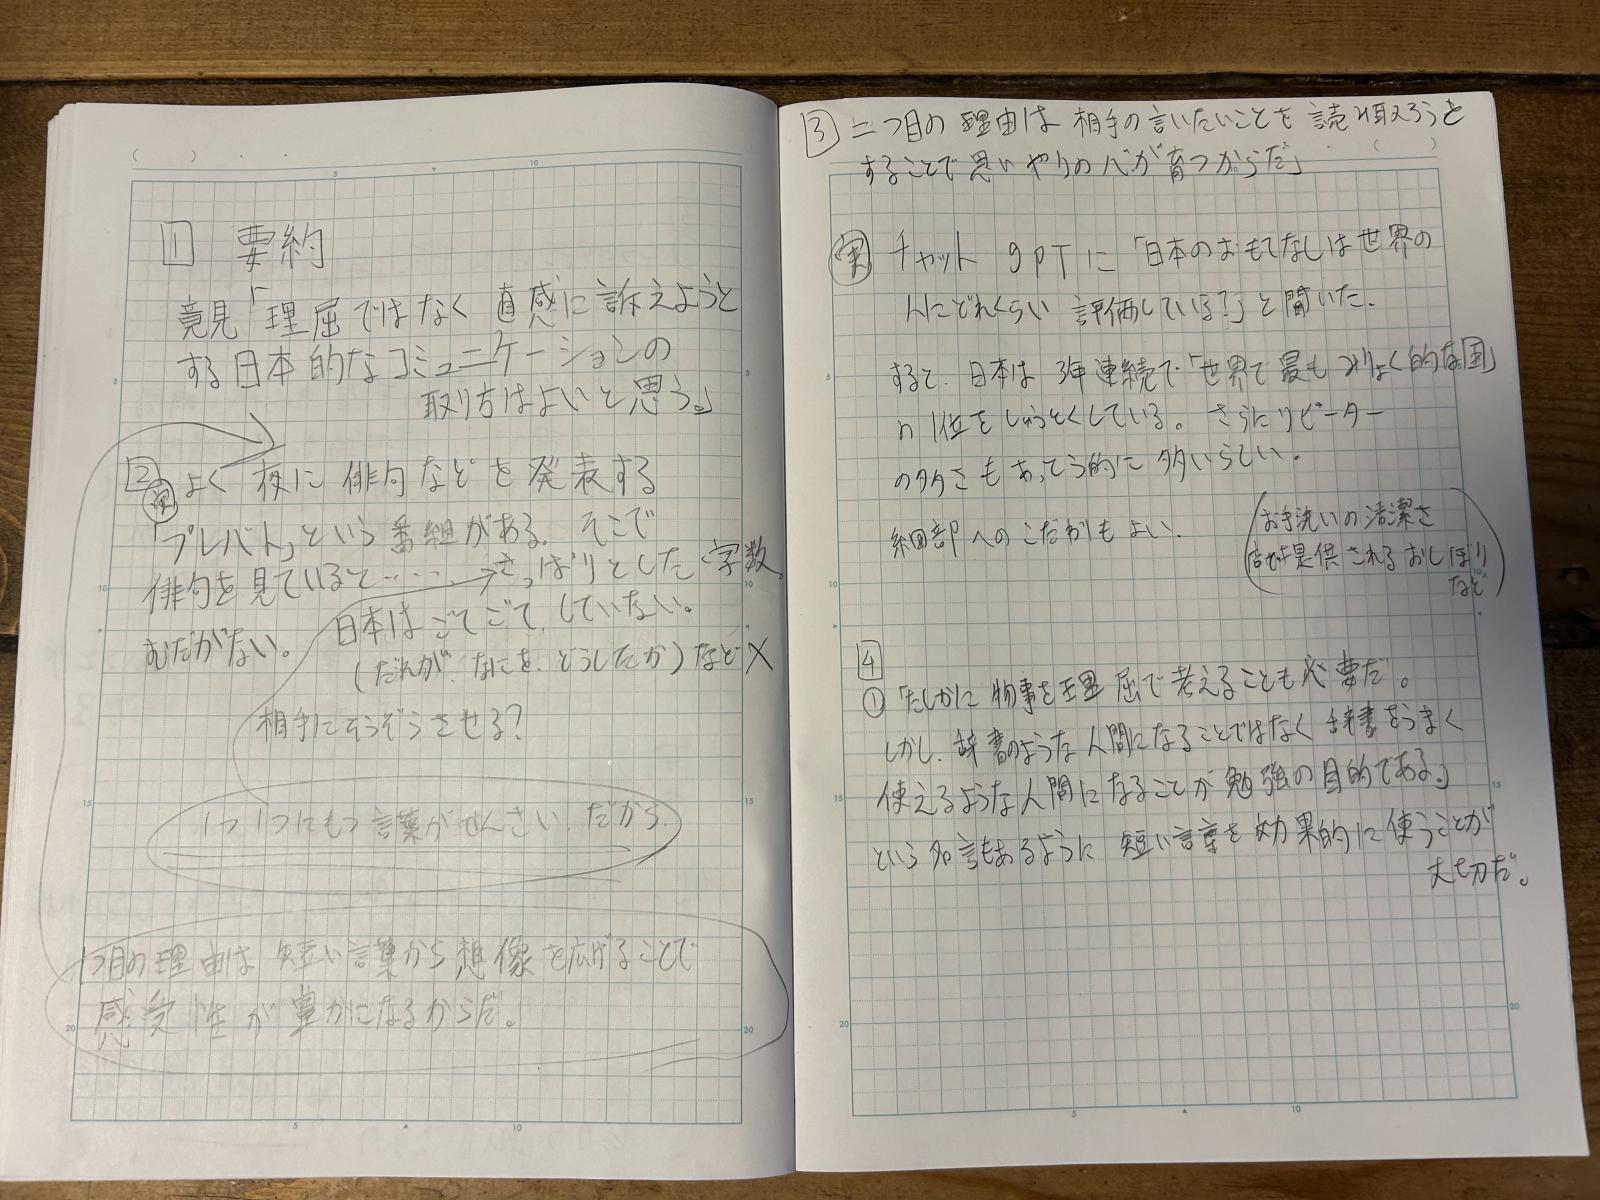 1 要約
意見「理屈ではなく直感に訴えようと
する日本的なコミュニケーションの
取り方はよいと思う。」
2
実 よく夜に俳句などを発表する
「プレバト」という番組がある。そこで
俳句を見ていると……さっぱりとした字数。
むだがない。
日本はごてごてしていない。
(だれが、なにを、どうしたか)など×
相手にそうぞうさせる?
1つ1つにもつ言葉がせんさい、だから、
1つ目の理由は短い言葉から想像を広げることで
感受性が豊かになるからだ。
3 二つ目の理由は相手の言いたいことを読み取ろうと
することで思いやりの心が育つからだ」
実 チャット gPTに「日本のおもてなしは世界の
人にどれくらい評価している?」と聞いた。
すると、日本は3年連続で「世界で最もみりょく的な国」
の1位をしゅうとくしている。さらにリピーター
の多さもあっとう的に多いらしい。
細部へのこだわりもよい。
(お手洗いの清潔さ
店で提供されるおしぼり
など)
4
① 「たしかに物事を理屈で考えることも必要だ。
しかし、辞書のような人間になることではなく辞書をうまく
使えるような人間になることが勉強の目的である。」
という名言もあるように短い言葉を効果的に使うことが
大切だ。